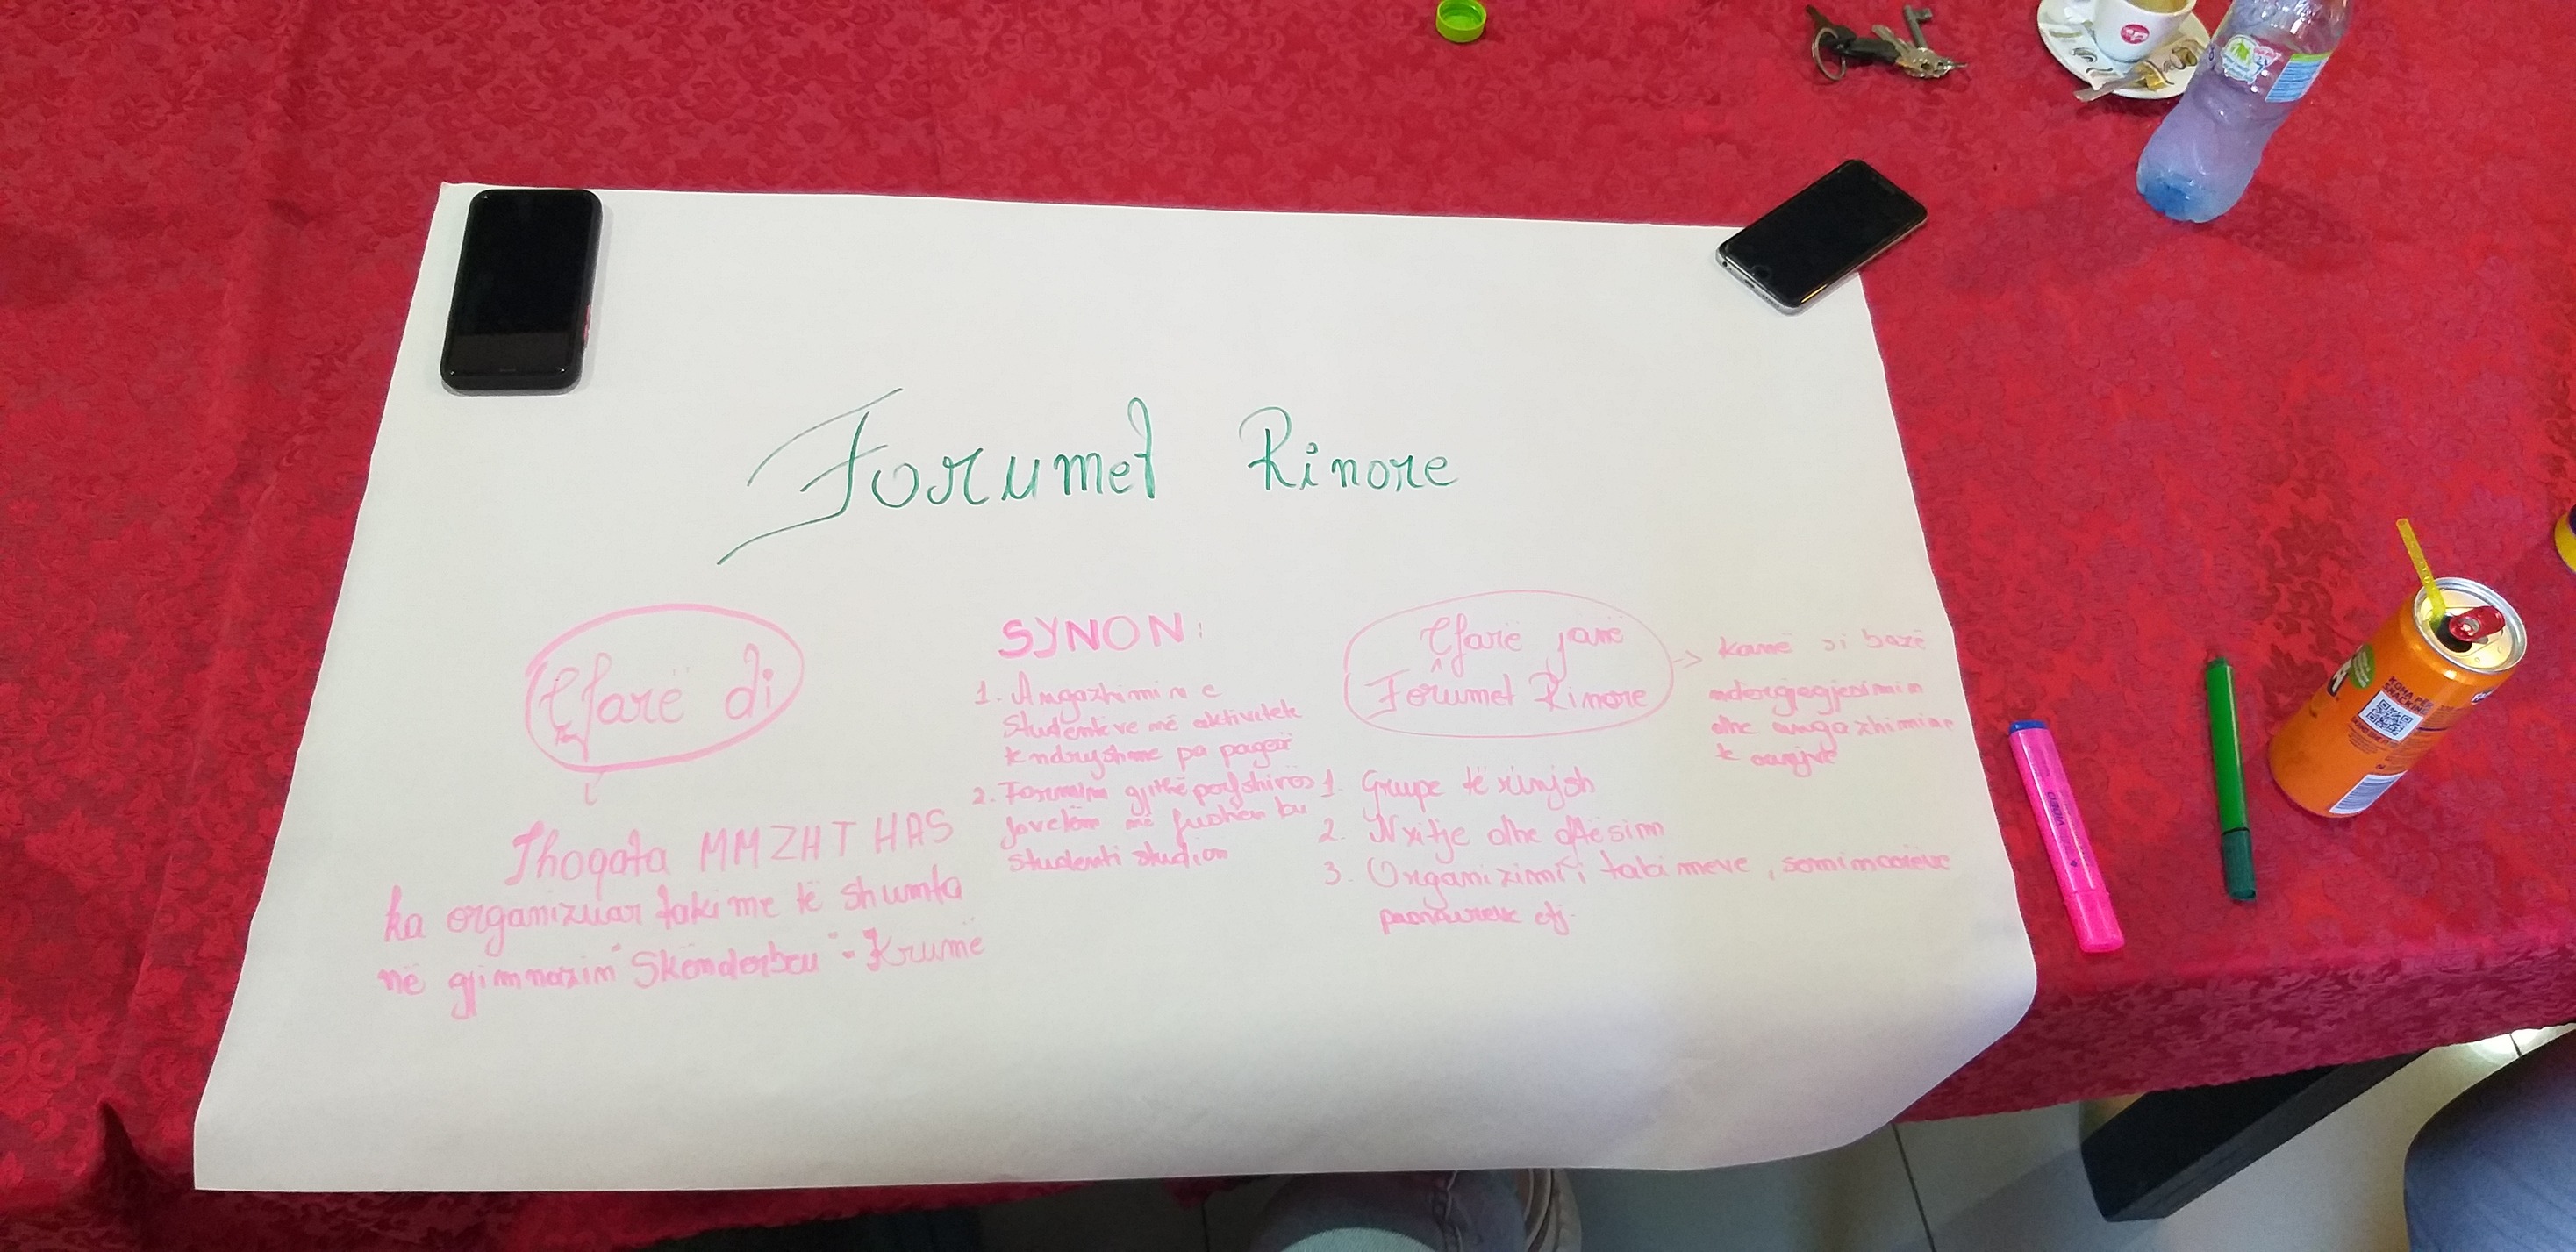 Forumet Rinore
Çfarë di
Shoqata MMZHT HAS
ka organizuar takime të shumta
në gjimnazin "Skënderbeu" - Krumë
SYNON:
1. Angazhimin e
Studentëve në aktivitek
të ndryshme pa pagesë
2. Formim gjithë përfshirës
jovetëm në fushën ku
studenti studion
Çfarë janë
Forumet Rinore
→ kanë si bazë
ndërgjegjësimin
dhe angazhimin
të
1. Grupe të rinjsh
2. Nxitje dhe ftesim
3. Organizimi i takimeve, seminareve
panaireve etj.
KOHA PËR
SNACKING
VIDEO